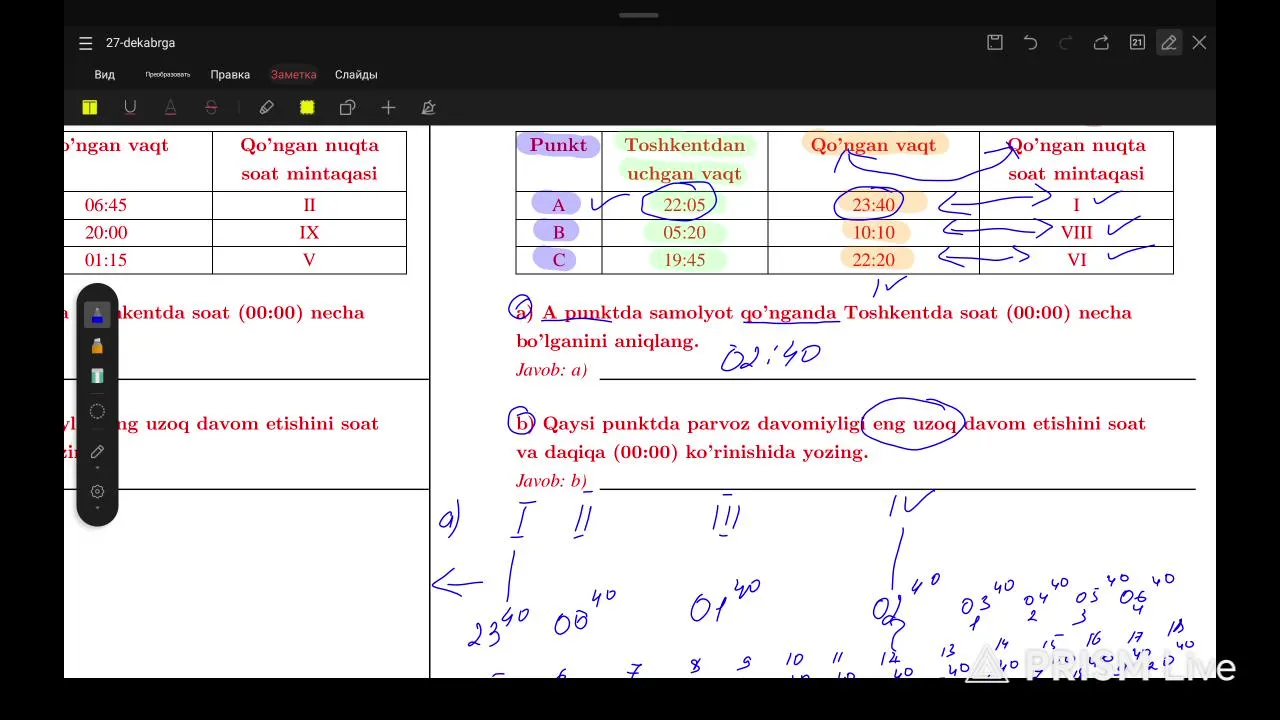 27-dekabrga
21
Вид Преобразовать Правка Заметка Слайды
o'ngan vaqt Qo'ngan nuqta soat mintaqasi
06:45 II
20:00 IX
01:15 V
kentda soat (00:00) necha
ng uzoq davom etishini soat
Punkt Toshkentdan uchgan vaqt Qo'ngan vaqt Qo'ngan nuqta soat mintaqasi
A 22:05 23:40 I
B 05:20 10:10 VIII
C 19:45 22:20 VI
IV
a) A punktda samolyot qo'nganda Toshkentda soat (00:00) necha
bo'lganini aniqlang.
02:40
Javob: a)
b) Qaysi punktda parvoz davomiyligi eng uzoq davom etishini soat
va daqiqa (00:00) ko'rinishida yozing.
Javob: b)
a) I II III IV
23 40 00 40 01 40 02 40 03 40 04 40 05 40 06 40
1 2 3 4
7 8 9 10 11 12 13 14 15 16 17 18
PRISM Live